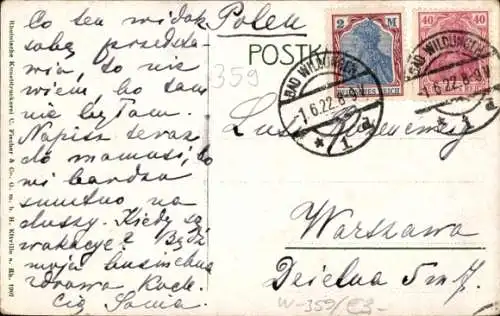 Co ten widok
sobą przedsta
wia, to nie
wiem bo tam
nie byłam.
Napisz teraz
do mamusi, bo
mi bardzo
smutno na
duszy. Kiedy są
wakacye? Bądź
moja
zdrowa Koch.
Cię Sonia.
Polen
POSTK
359
2 M
DEUTSCHES REICH
40 40
BAD WILDUNGEN
-1.6.22.8-9
* 1 a
BAD WILDUNGEN
-1.6.22.8-9
* 1 a
Warszawa
Dzielna 5 m 7.
W-359/
Rheinische Kunstdruckerei C. Fischer & Co. G. m. b. H. Eltville a. Rh. 1907